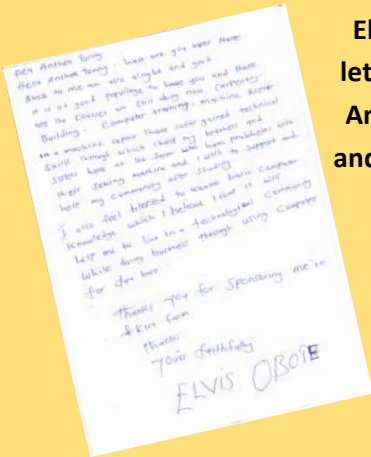 Hello Anthea Tonny. how are you over there
Back to me am also alright and good.
it is of good previlege to have you and these
are the courses am still doing now carpentry.
Building. Computer training, machine
in a machine repair I have gained technical
skills through which I help my brothers and
sisters here at the farm who have problems with
their sewing machine and I wish to support and
help my community after studying
I also feel blessed to receive basic Computer
knowledge which I believe that it will
help me to live in a technological Community
while doing business through using Computer
for
thanks you for sponsoring me in
farm
thanks
yours faithfully
ELVIS OBOTE
El
let
Ar
and